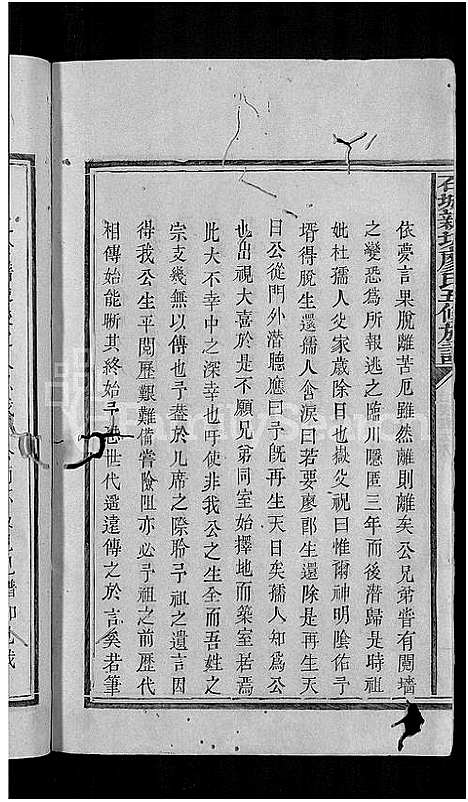 石城新坊廖氏五修族譜
依夢言果脫離苦厄雖然離則離矣公兄弟嘗有鬩墻
之變悉為所報逃之臨川隱匿三年而後潛歸是時祖
妣杜孺人父家歲除日也嶽父祝曰惟爾神明陰佑予
壻得脫生還孺人含淚曰若要廖郎生還除是再生天
日公從門外潛聽應曰予旣再生天日矣孺人知為公
也出視大喜於是不願兄弟同室始擇地而築室居焉
此大不幸中之深幸也吁使非我公之生全而吾姓之
宗支幾無以傳也予葢於几席之際聆予祖之遺言因
得我公生平閱歷艱難偹嘗險阻亦必予祖之前歷代
相傳始能晰其終始予恐世代遥遠傳之於言奚若筆
FamilySearch